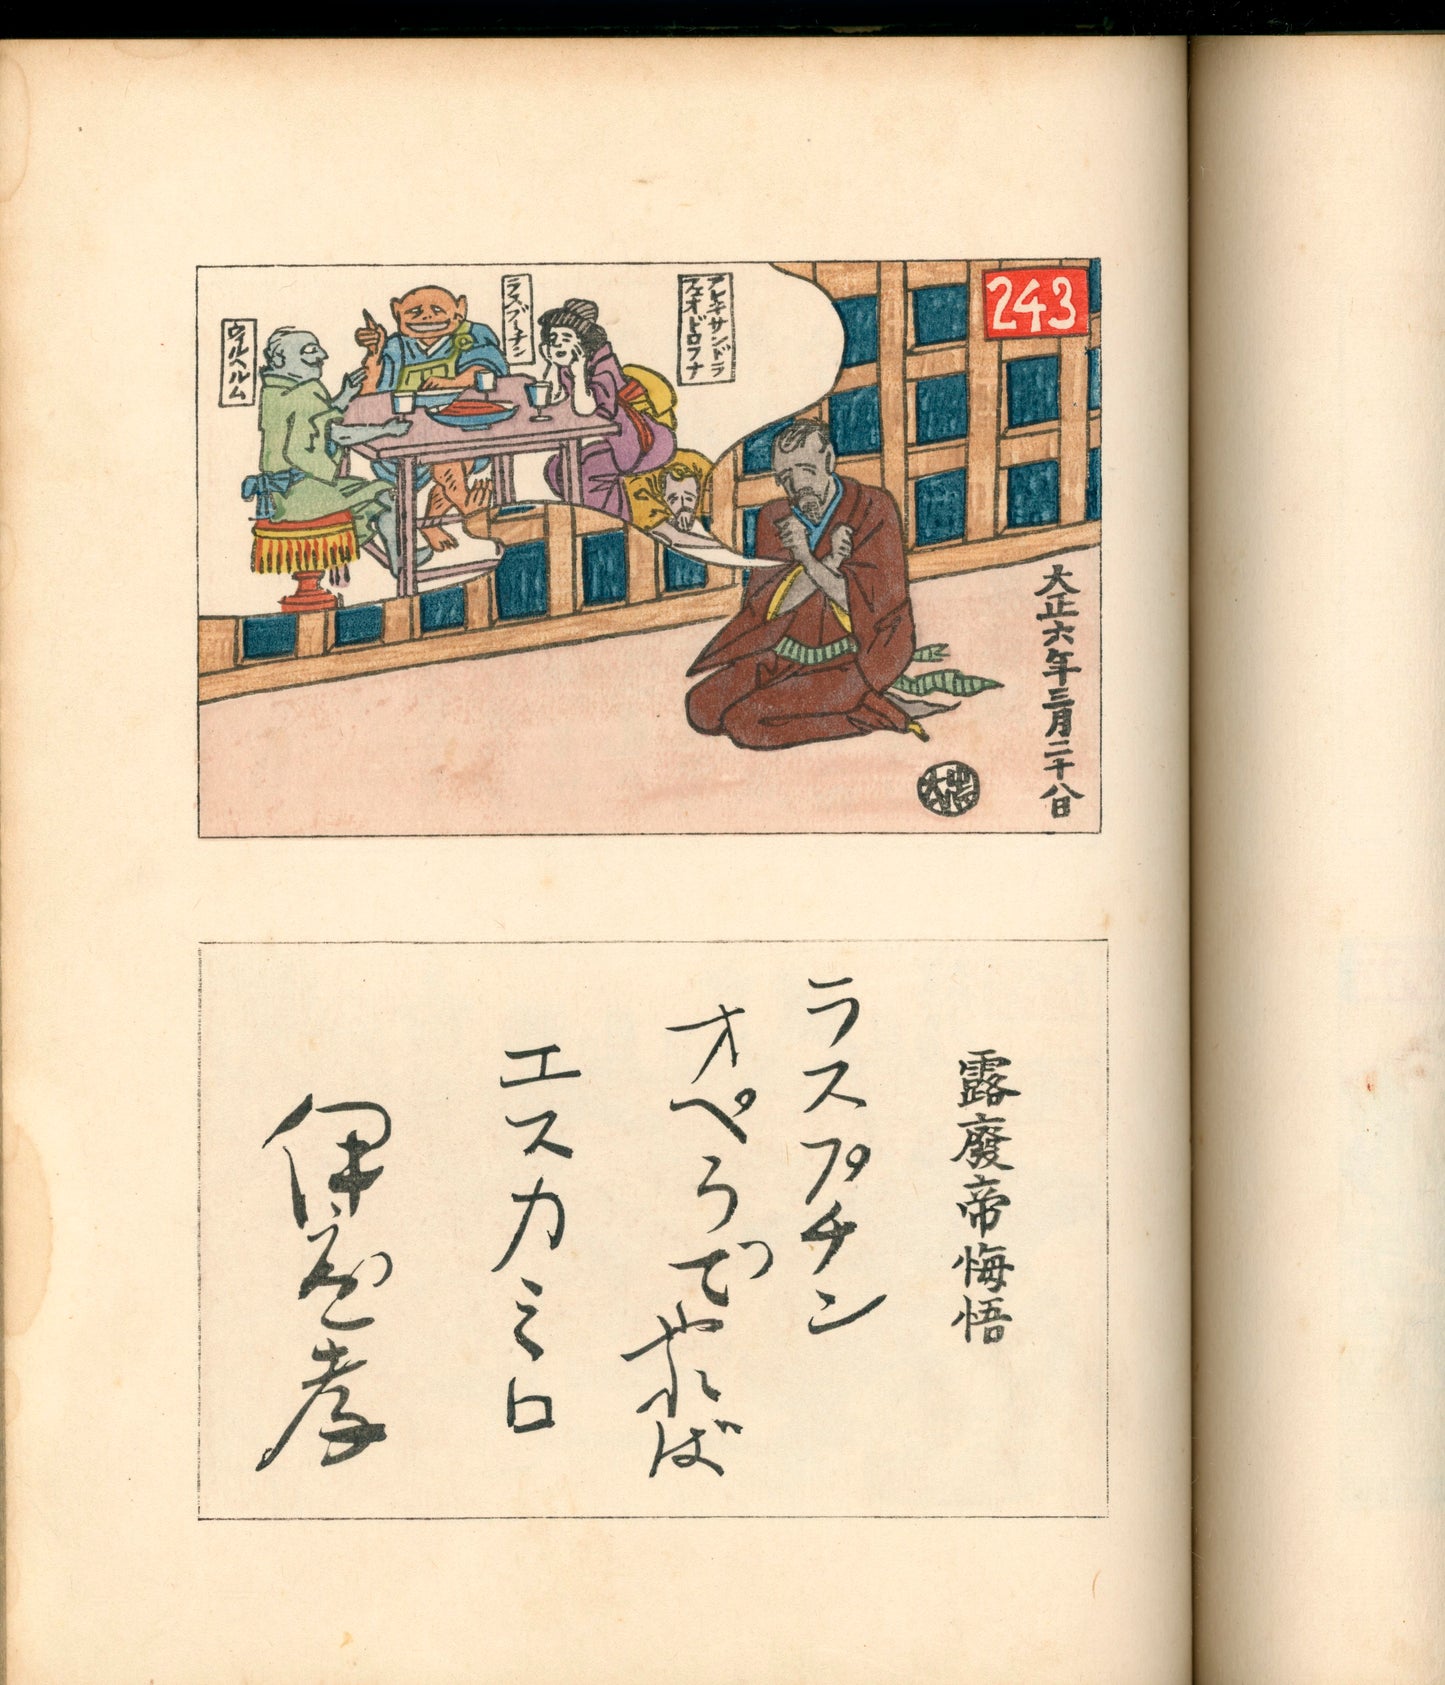 243
アレキサンドラ
フェオドロフナ
ラスプーチン
ウイルヘルム
大正六年三月二十八日
露廢帝悔悟
ラスプチン
オペらでやれば
エスカミロ